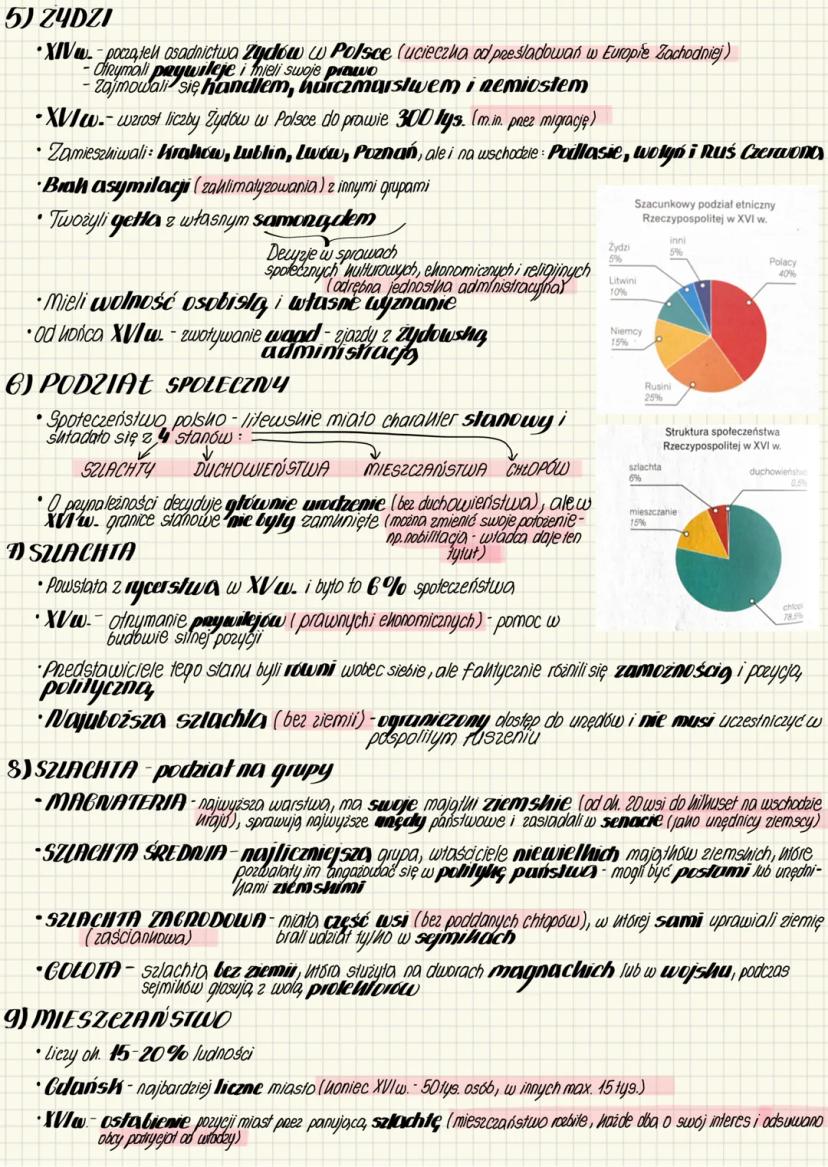 5) ŻYDZI
• XIV w. - początek osadnictwa Żydów w Polsce (ucieczka od prześladowań w Europie Zachodniej)
- Otrzymali przywileje i mieli swoje prawo
- Zajmowali się handlem, karczmarstwem i rzemiosłem
• XVI w. - wzrost liczby Żydów w Polsce do prawie 300 tys. (m.in. przez migrację)
• Zamieszkiwali: Kraków, Lublin, Lwów, Poznań, ale i na wschodzie: Podlasie, Wołyń i Ruś Czerwoną
• Brak asymilacji (zaklimatyzowania) z innymi grupami
• Tworzyli getta z własnym samorządem
Decyzje w sprawach
społecznych kulturowych, ekonomicznych i religijnych
(odrębna jednostka administracyjna)
• Mieli wolność osobistą i własne wyznanie
• Od końca XVI w. - zwoływanie waad - zjazdy z żydowską
administracją
Szacunkowy podział etniczny
Rzeczypospolitej w XVI w.
Żydzi
5%
inni
5%
Polacy
40%
Litwini
10%
Niemcy
15%
Rusini
25%
6) PODZIAŁ SPOŁECZNY
• Społeczeństwo polsko - litewskie miało charakter stanowy i
składało się z 4 stanów:
SZLACHTY DUCHOWIEŃSTWA MIESZCZAŃSTWA CHŁOPÓW
• O przynależności decyduje głównie urodzenie (bez duchowieństwa), ale w
XVI w. granice stanowe nie były zamknięte (można zmienić swoje położenie -
np. nobilitacja - władca daje ten
tytuł)
Struktura społeczeństwa
Rzeczypospolitej w XVI w.
szlachta
6%
duchowieństwo
0,5%
mieszczanie
15%
chłopi
78,5%
7) SZLACHTA
• Powstała z rycerstwa w XV w. i było to 6% społeczeństwa
• XV w. - otrzymanie przywilejów (prawnych i ekonomicznych) - pomoc w
budowie silnej pozycji
• Przedstawiciele tego stanu byli równi wobec siebie, ale faktycznie różnili się zamożnością i pozycją
polityczną
• Najuboższa szlachta (bez ziemii) - ograniczony dostęp do urzędów i nie musi uczestniczyć w
pospolitym ruszeniu
8) SZLACHTA - podział na grupy
• MAGNATERIA - najwyższa warstwa, ma swoje majątki ziemskie (od ok. 20 wsi do kilkuset na wschodzie
kraju), sprawują najwyższe urzędy państwowe i zasiadali w senacie (jako urzędnicy ziemscy)
• SZLACHTA ŚREDNIA - najliczniejsza grupa, właściciele niewielkich majątków ziemskich, które
pozwalały im angażować się w politykę państwa - mogli być posłami lub urzędni-
kami ziemskimi
• SZLACHTA ZAGRODOWA - miała część wsi (bez poddanych chłopów), w której sami uprawiali ziemię
(zaściankowa) brali udział tylko w sejmikach
• GOŁOTA - szlachta bez ziemii, która służyła na dworach magnackich lub w wojsku, podczas
sejmików głosują z wolą protektorów
9) MIESZCZAŃSTWO
• Liczy ok. 15-20% ludności
• Gdańsk - najbardziej liczne miasto (koniec XVI w. - 50 tys. osób, w innych max. 15 tys.)
• XVI w. - osłabienie pozycji miast przez panującą szlachtę (mieszczaństwo rozbite, każde dba o swój interes i odsuwano
obcy patrycjat od władzy)